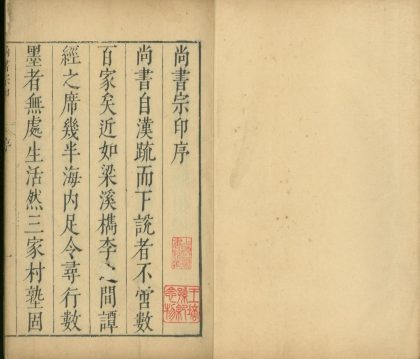 尚書宗印序
尚書自漢疏而下說者不啻數
百家矣近如梁溪檇李之間譚
經之席幾半海內足令尋行數
墨者無處生活然三家村塾固